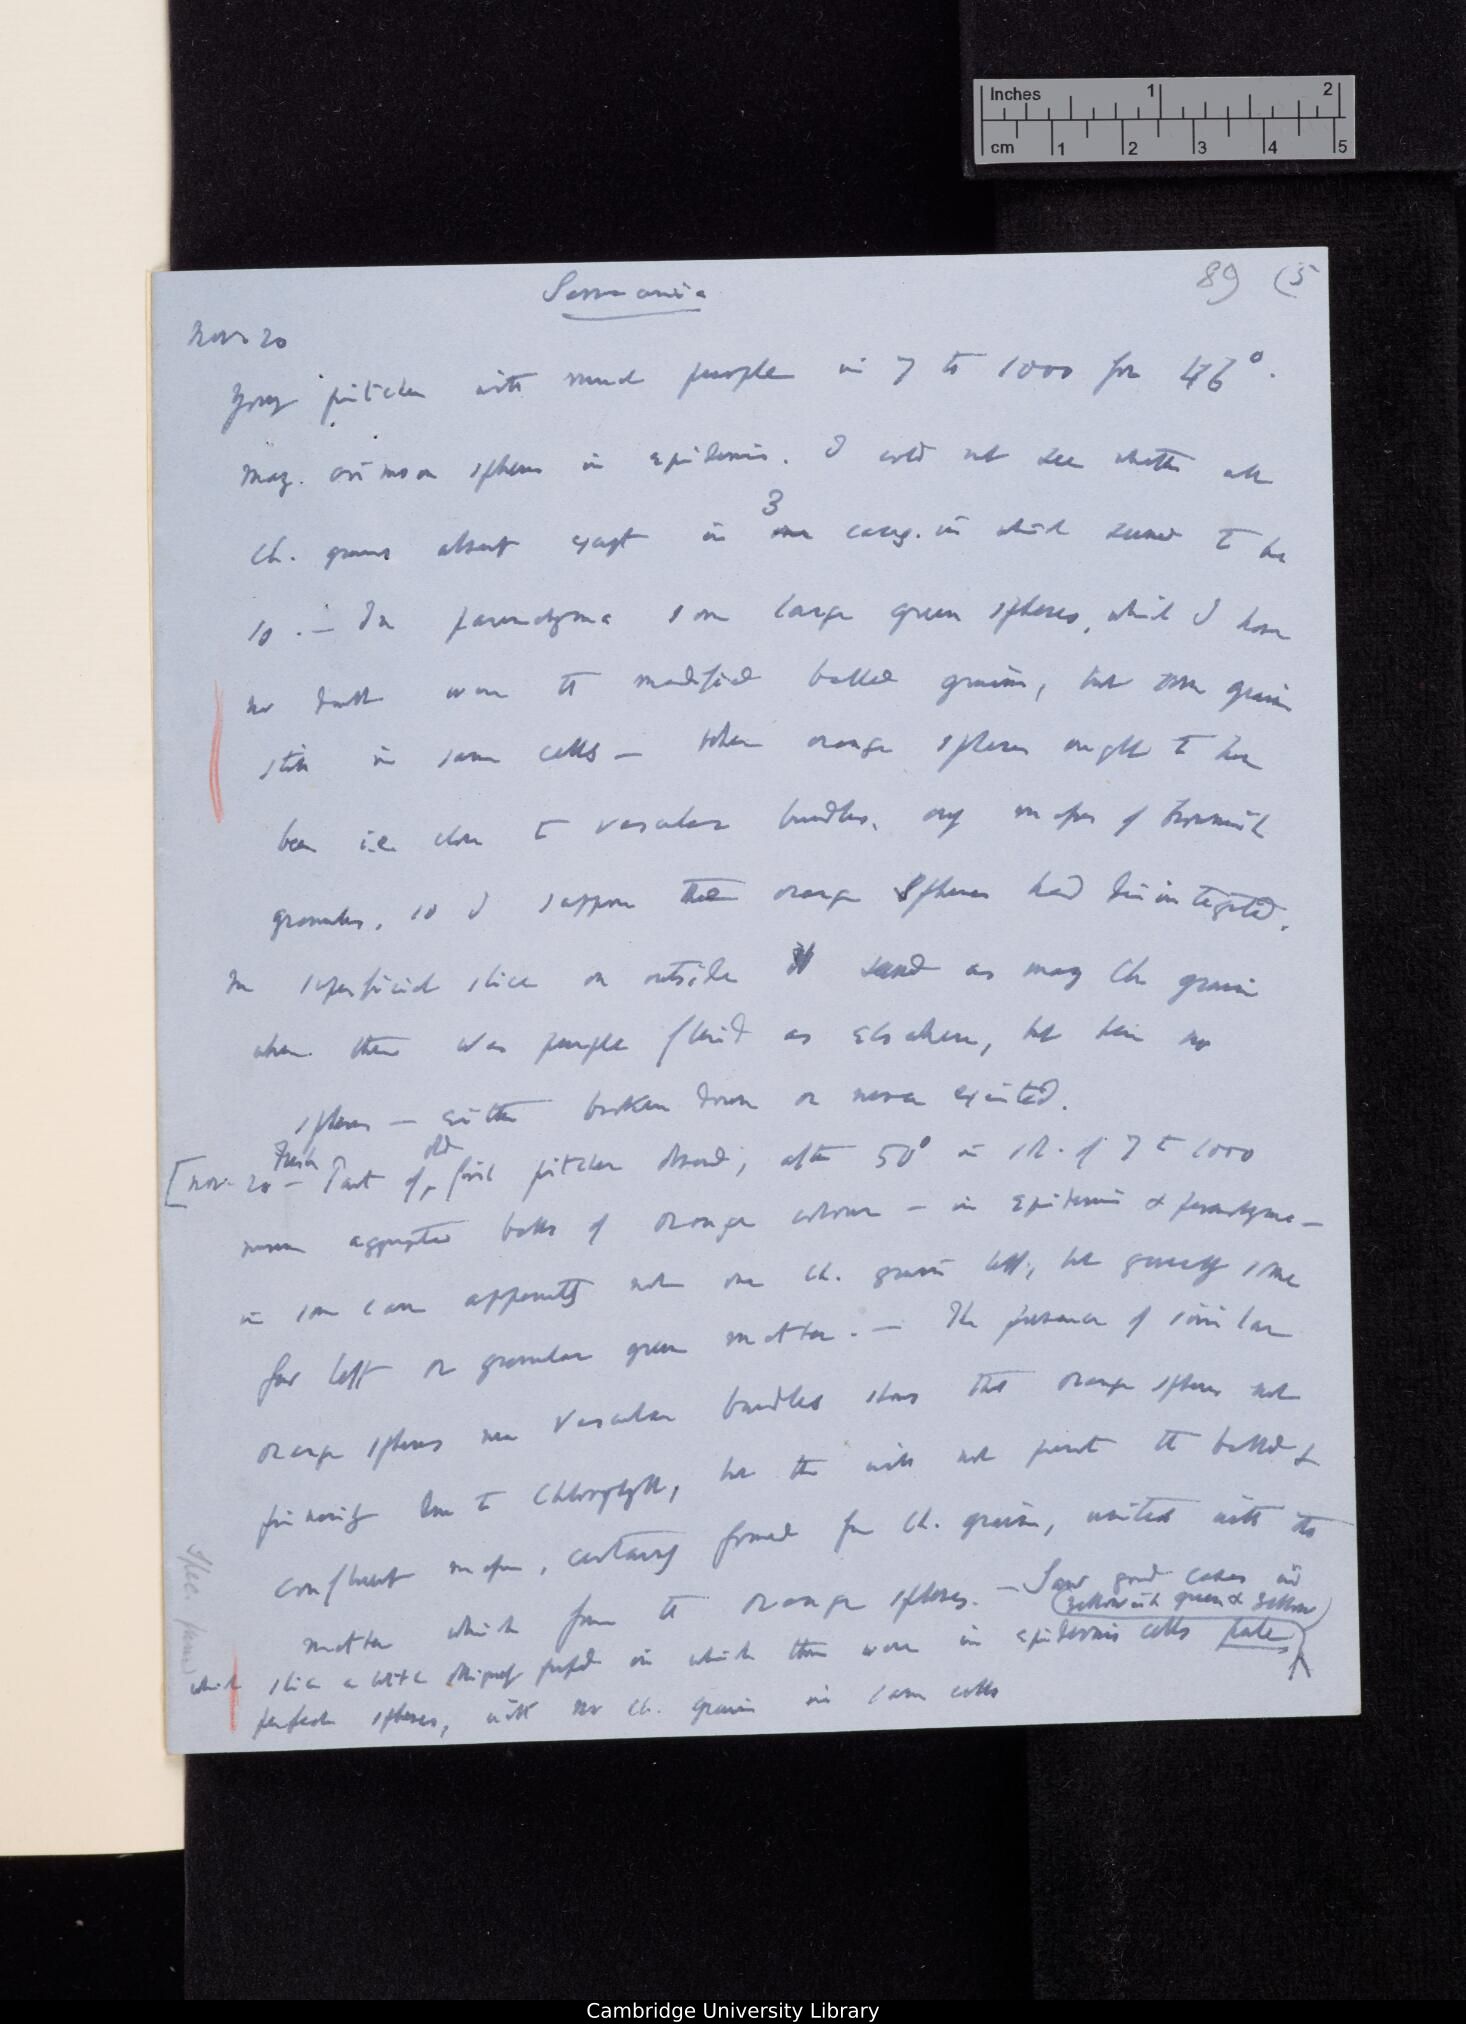 Inches 1 2
cm 1 2 3 4 5
89 (5
Sarracenia
Nov 20
Young pitcher with much purple in 7 to 1000 for 46°.
Many crimson spheres in epidermis. I could not see whether all
Ch. grains absent except in 3 cases. in which seemed to be
so. — In parenchyma some large green spheres, which I have
no doubt were the modified balled grains, but some grains
still in same cells — where orange spheres ought to have
been i.e. close to vascular bundles, only masses of brownish
granules, so I suppose these orange Spheres had disintegrated.
In superficial slice on outside as many Ch. grains
where there was purple fluid as elsewhere, but here no
spheres — either broken down or never existed.
[Nov. 20 — Fresh Part of old first pitcher observed, after 50° in sol. of 7 to 1000
numerous aggregated balls of orange colour — in epidermis & parenchyma —
in some cases apparently not one Ch. grain left, but generally some
few left or granular green matter. — The presence of similar
orange spheres near vascular bundles shows that orange spheres not
primarily due to Chlorophyll, but this will not prevent the balled &
confluent masses, certainly formed from Ch. grains, united with the
matter which forms the orange spheres. — Saw good cases in
(yellowish green & yellow)
which slice in which there were in epidermis cells pale
perfect spheres, with no Ch. grains in same cells
Cambridge University Library